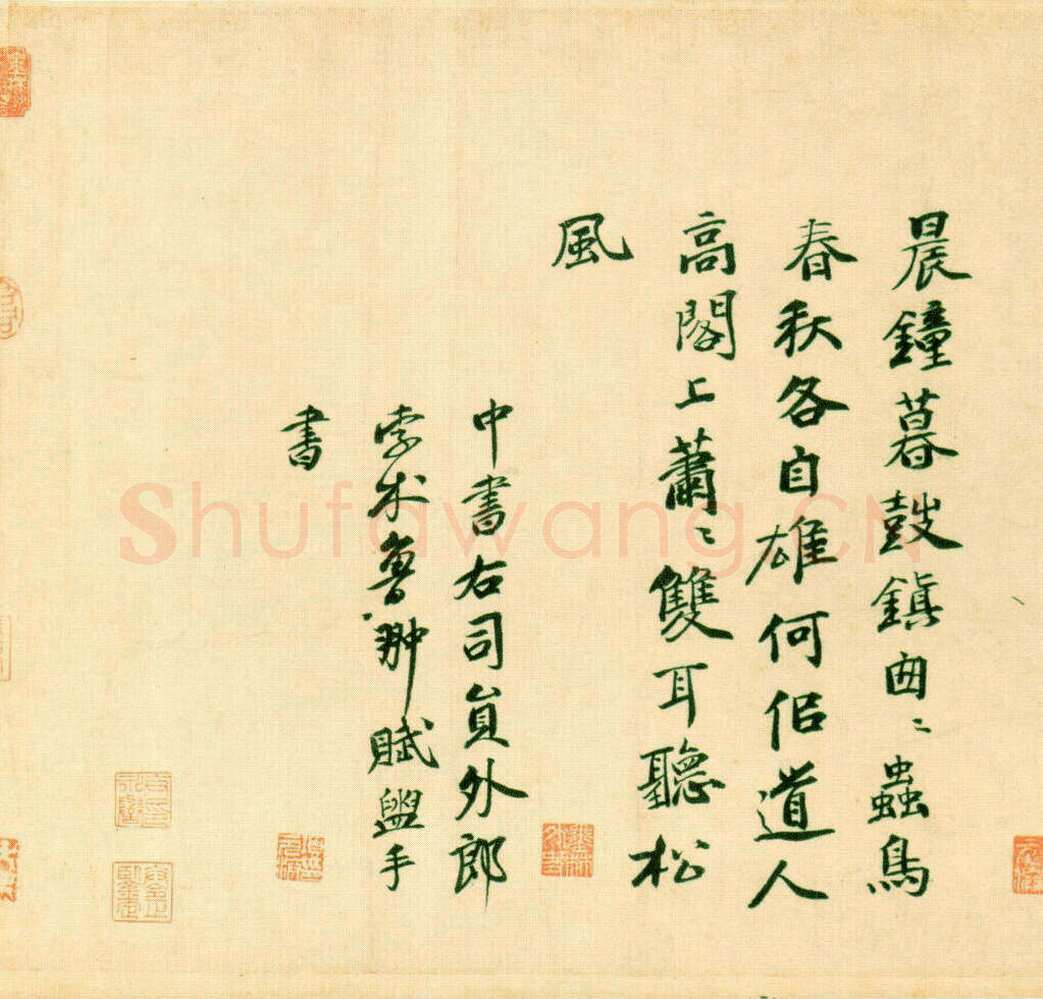 晨鐘暮鼓鎮匆〻蟲鳥
春秋各自雄何佀道人
高閣上蕭〻雙耳聽松
風
中書右司員外郎
孛术魯翀賦盥手
書
Shufawang.CN